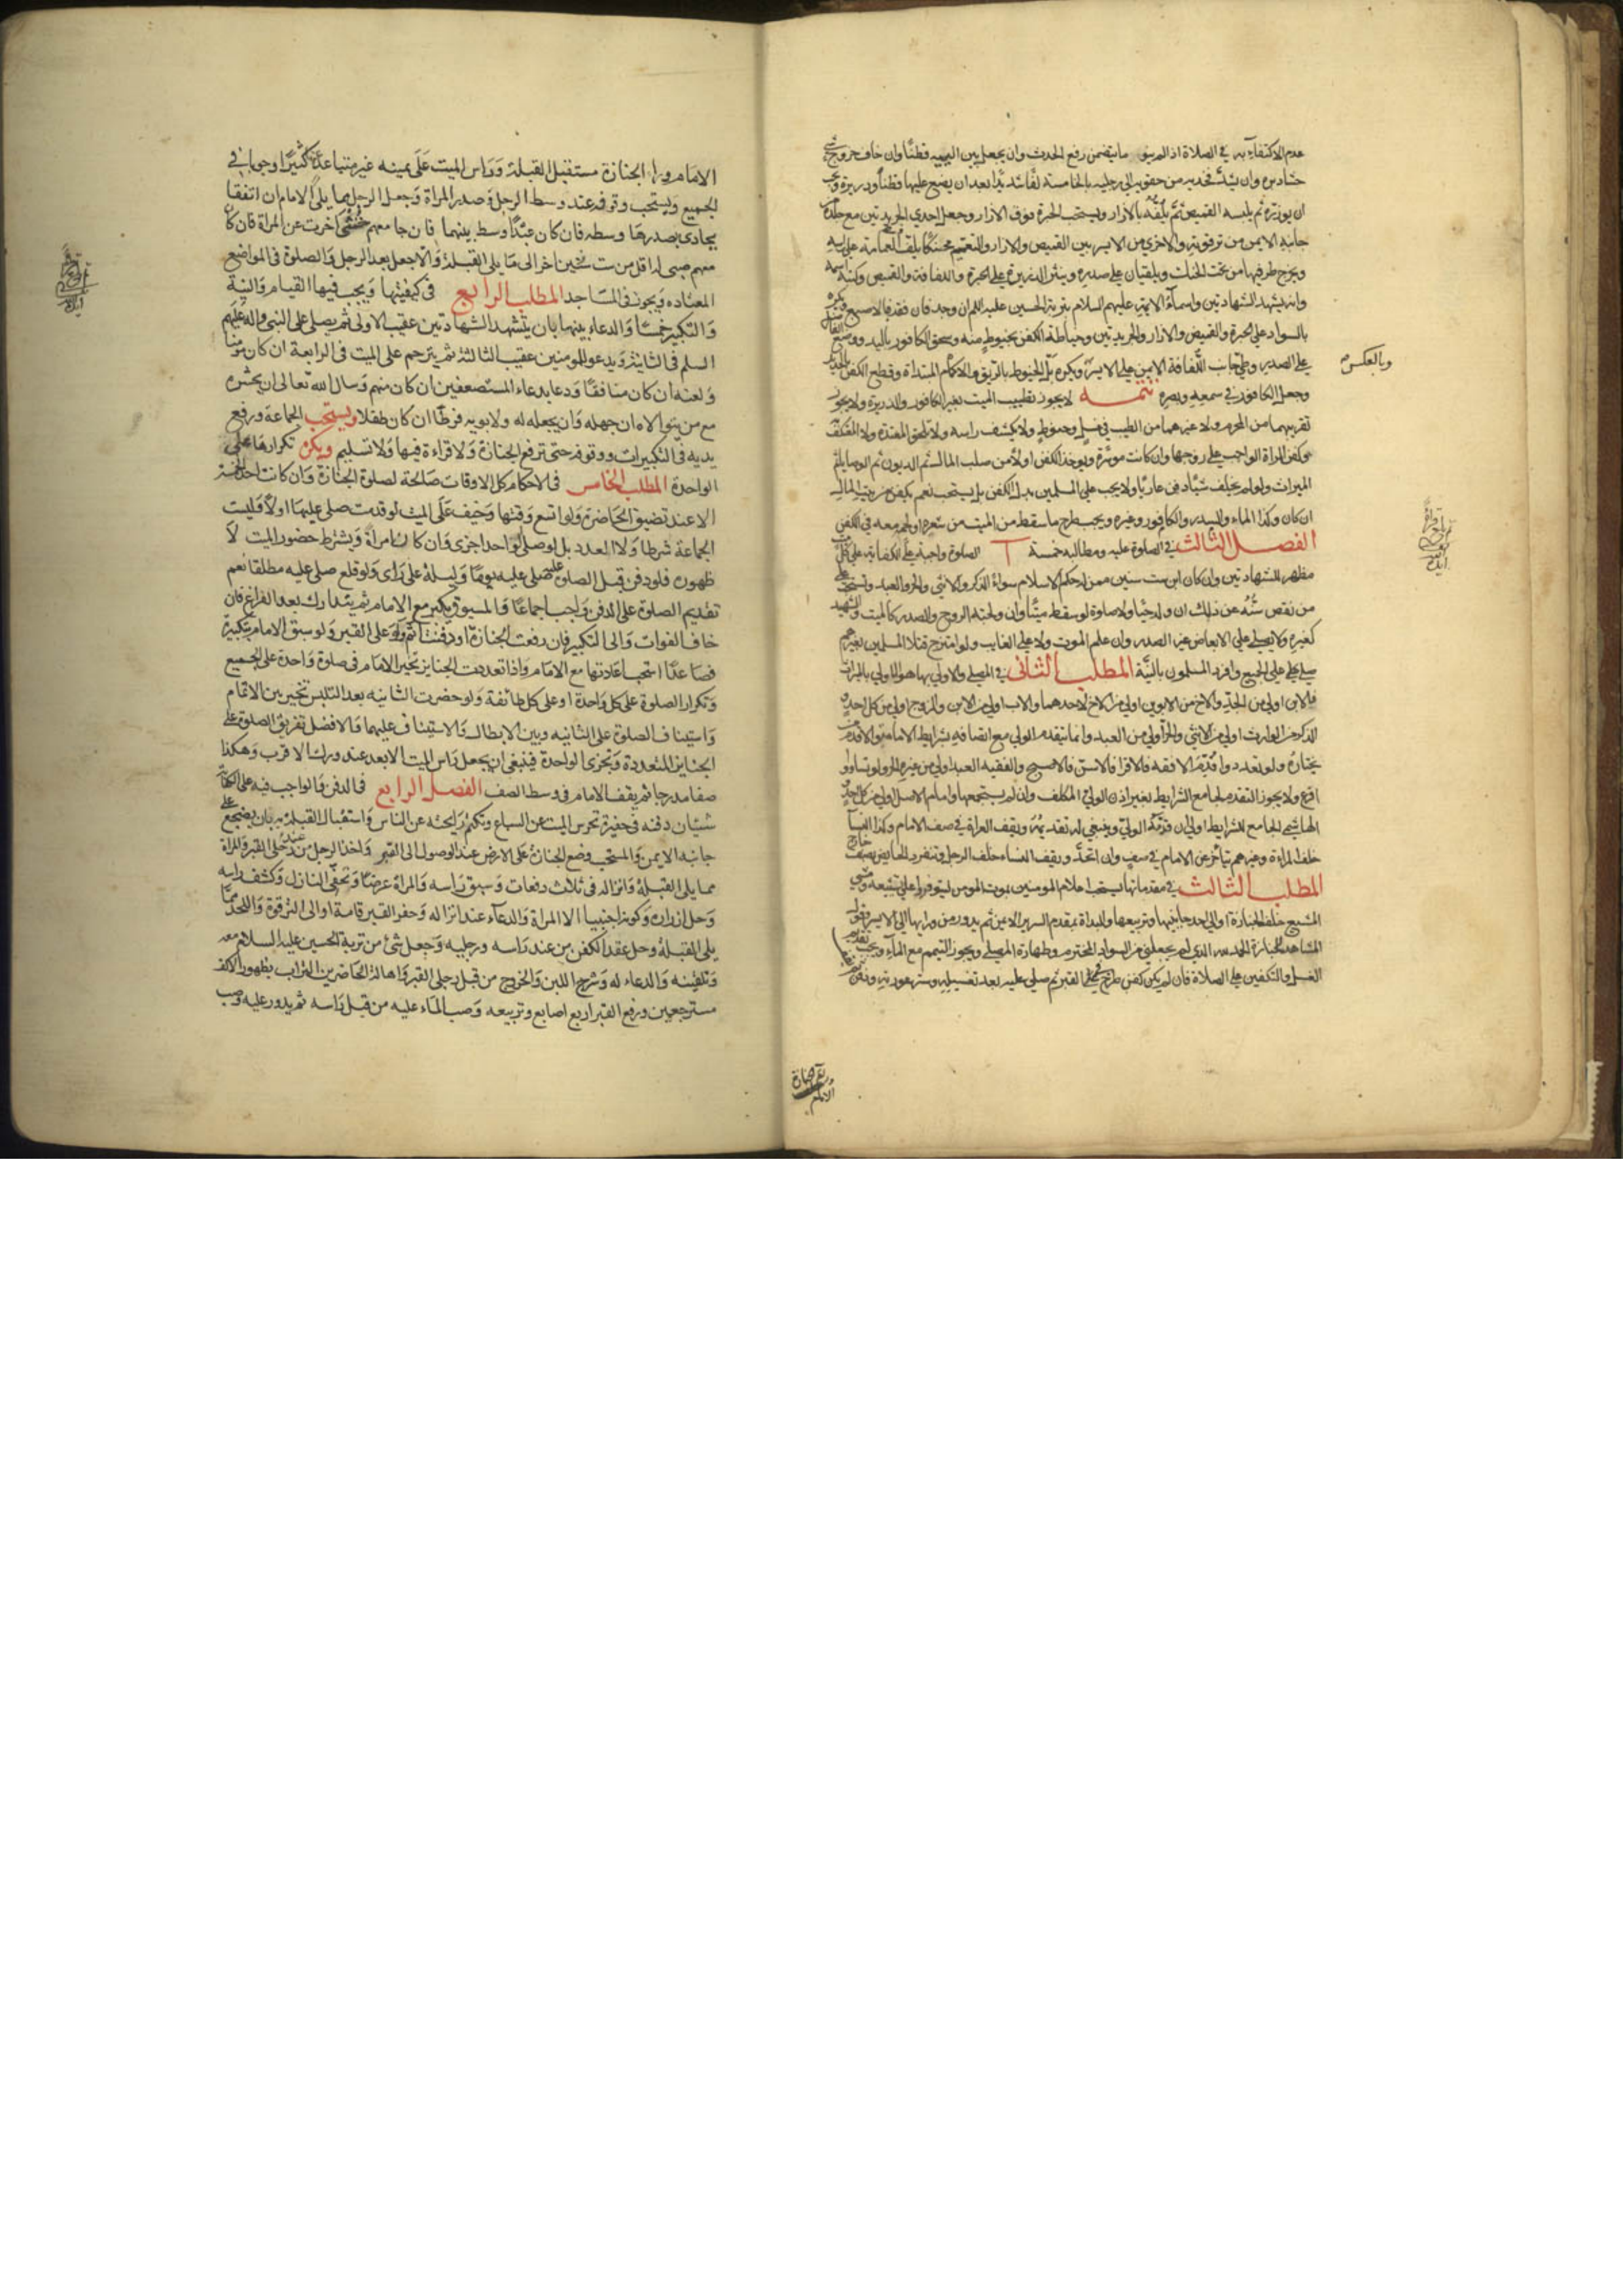 عدم الاكتفاء به في الصلاة اذا لم ينو ما يتضمن رفع الحدث وان يجعل بين اليتيه قطنا وان خاف خروج شي
حشا دبره وان يشد فخذيه من حقويه الى رجليه بالخامسة لفا شديدا بعد ان يضع عليها قطنا وذريرة ويجب
ان يوزره ثم يلبسه القميص ثم يلفه بالازار ويستحب الحبرة فوق الازار وجعل احدى الجريدتين مع جلده
جانبه الايمن من ترقوته والاخرى من الايسر بين القميص والازار والتعميم محنكا يلف العمامة على راسه
ويخرج طرفيها من تحت الحنك ويلقيان على صدره وينثر الذريرة على الحبرة واللفافة والقميص وكتبة اسمه
وانه يشهد الشهادتين واسماء الايمة عليهم السلام بتربة الحسين عليه السلام ان وجد فان فقد فبالاصبع ويكره
بالسواد على الحبرة والقميص والازار والجريدتين وخياطة الكفن بخيوط منه وسحق الكافور باليد ووضع الفاضل
على الصدر وطي جانب اللفافة الايسر على الايمن ويكره بل الخيوط بالريق والاكمام المبتداة وقطع الكفن بالحديد
وبالعكس
وجعل الكافور في سمعه وبصره تتمــه لا يجوز تطييب الميت بغير الكافور والذريرة ولا يجوز
تقريبهما من المحرم ولا غيرهما من الطيب في غسل وحنوط ولا يكشف راسه ولا تلحق المعتدة ولا المعتكف
وكفن المراة الواجب على زوجها وان كانت موسرة ويوخذ الكفن اولا من صلب المال ثم الديون ثم الوصايا ثم
الميراث ولو لم يخلف شيئا دفن عاريا ولا يجب على المسلمين بذل الكفن بل يستحب نعم يكفن من بيت المال
ان كان وكذا الماء والسدر والكافور وغيره ويجب طرح ما سقط من الميت من شعره او لحمه معه في الكفن
الفصل الثالث في الصلوة عليه ومطالبه خمسة آ الصلوة واجبة على الكفاية على كل ميت
مظهر للشهادتين وان كان ابن ست سنين ممن له حكم الاسلام سواء الذكر والانثى والحر والعبد وتستحب على
من نقص سنه عن ذلك ان ولد حيا ولا صلوة لو سقط ميتا وان ولجته الروح والصدر كالميت والشهيد
كغيره ولا يصلى على الابعاض غير الصدر وان علم الموت ولا على الغايب ولو امتزج قتلا المسلمين بغيرهم
صلى على الجميع وافرد المسلمون بالنية المطلب الثاني في المصلي والاولى بها هو الاولى بالميراث
فالابن اولى من الجد والاخ من الابوين اولى من الاخ لاحدهما والاب اولى من الابن والزوج اولى من كل احد
الذكر من الوارث اولى من الانثى والحر اولى من العبد وانما يتقدم الولي مع اتصافه بشرايط الامامة والا قدم من
يختاره ولو تعددوا قدم الافقه فالاقرا فالاسن فالاصبح والفقيه العبد اولى من غيره الحر ولو تساووا
اقرع ولا يجوز التقدم لجامع الشرايط بغير اذن الولي المكلف وان لم يستجمعها وامام الاصل اولى من كل احد
الهاشمي الجامع للشرايط اولى ان قدمه الولي وينبغي له تقديمه ويقف العراة في صف الامام وكذا النساء
خلف المراءة وغيرهم يتاخر عن الامام في صف وان اتحد ويقف النساء خلف الرجل وتنفرد الحايض بصف خارج
المطلب الثالث في مقدماتها يستحب اعلام المومنين بموت المومن ليتوفروا على تشييعه ومشي
المشيع خلف الجنازة او الى احد جانبيها وتربيعها والبداة بمقدم السرير الايمن ثم يدور من ورايها الى الايسر وقول
المشاهد للجنازة الحمد لله الذي لم يجعلني من السواد المخترم وطهارة المصلي ويجوز التيمم مع الماء ويجب تقديم
الغسل والتكفين على الصلاة فان لم يكن كفن طرح في القبر ثم صلي عليه بعد تغسيله وستر عورته ودفن
الامام وراء الجنازة مستقبل القبلة وراس الميت على يمينه غير متباعد عنها كثيرا وجوبا في
الجميع ويستحب وقوفه عند وسط الرجل وصدر المراة وجعل الرجل مما يلي الامام ان اتفقا
يحاذى بصدرها وسطه فان كان عبدا وسط بينهما فان جامعهم خنثى اخرت عن المراة فان كان
معهم صبي له اقل من ست سنين اخر الى ما يلي القبلة والا جعل بعد الرجل والصلوة في المواضع
المعتاده ويجوز في المساجد المطلب الرابع في كيفيتها ويجب فيها القيام والنية
والتكبير خمسا والدعاء بينها بان يتشهد الشهادتين عقيب الاولى ثم يصلي على النبي واله عليهم
السلم في الثانية ويدعو للمومنين عقيب الثالثة ثم يترحم على الميت في الرابعة ان كان مومنا
ولعنه ان كان منافقا ودعا بدعاء المستضعفين ان كان منهم وسال الله تعالى ان يحشره
مع من يتولاه ان جهله وان يجعله له ولابويه فرطا ان كان طفلا ويستحب الجماعة ورفع
يديه في التكبيرات ووقوفه حتى ترفع الجنازة ولا قراءة فيها ولا تسليم ويكره تكرارها على
الواحدة المطلب الخامس في الاحكام كل الاوقات صالحة لصلوة الجنازة وان كانت احد الخمسة
الا عند تضيق الحاضرة ولو اتسع وقتها وخيف على الميت لو قدمت صلي عليها اولا وليست
الجماعة شرطا ولا العدد بل لو صلى الواحد اجزى وان كان امراة ويشترط حضور الميت لا
ظهوره فلو دفن قبل الصلوة عليه صلي عليه يوما وليلة على راى ولو قلع صلي عليه مطلقا نعم
تقديم الصلوة على الدفن واجب اجماعا والمسبوق يكبر مع الامام ثم يتدارك بعد الفراغ فان
خاف الفوات والى التكبير فان رفعت الجنازة او دفنت اتم ولو على القبر ولو سبق الامام بتكبيرة
فصاعدا استحب اعادتها مع الامام واذا تعددت الجنايز تخير الامام في صلوة واحدة على الجميع
وتكرار الصلوة على كل واحدة او على كل طائفة ولو حضرت الثانيه بعد التلبس تخير بين الاتمام
واستيناف الصلوة على الثانيه وبين الابطال والاستيناف عليهما والافضل تفريق الصلوة على
الجنايز المتعددة وتجزى الواحدة فينبغي ان يجعل راس الميت الابعد عند ورك الاقرب وهكذا
صفا مدرجا ثم يقف الامام في وسط الصف الفصل الرابع في الدفن والواجب فيه على الكفاية
شيئان دفنه في حفيرة تحرس الميت عن السباع وتكتم رايحته عن الناس واستقبال القبلة به بان يضجع على
جانبه الايمن والمستحب وضع الجنازة على الارض عند الوصول الى القبر واخذ الرجل من عند رجلي القبر والمراة
مما يلي القبلة وانزاله في ثلاث دفعات وسبق راسه والمراة عرضا وتحفى النازل وكشف راسه
وحل ازراره وكونه اجنبيا الا المراة والدعاء عند انزاله وحفر القبر قامة او الى الترقوة واللحد مما
يلي القبلة وحل عقد الكفن من عند راسه ورجليه وجعل شئ من تربة الحسين عليه السلام معه
وتلقينه والدعاء له وشرج اللبن والخروج من قبل رجلي القبر واهالة الحاضرين التراب بظهور الاكف
مسترجعين ورفع القبر اربع اصابع وتربيعه وصب الماء عليه من قبل راسه ثم يدور عليه وصب